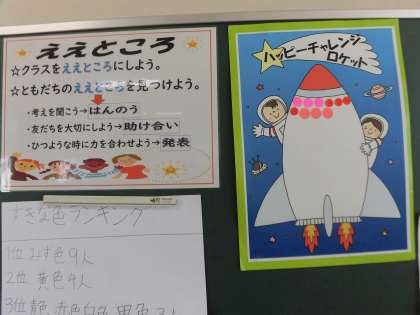 ええところ
☆クラスをええところにしよう。
☆ともだちのええところを見つけよう。
・考えを聞こう→はんのう
・友だちを大切にしよう→助け合い
・ひつような時に力を合わせよう→発表
ハッピーチャレンジ
ロケット
すきな色ランキング
1位 みず色 9人
2位 黄色 4人
3位 赤色 白色 黒色